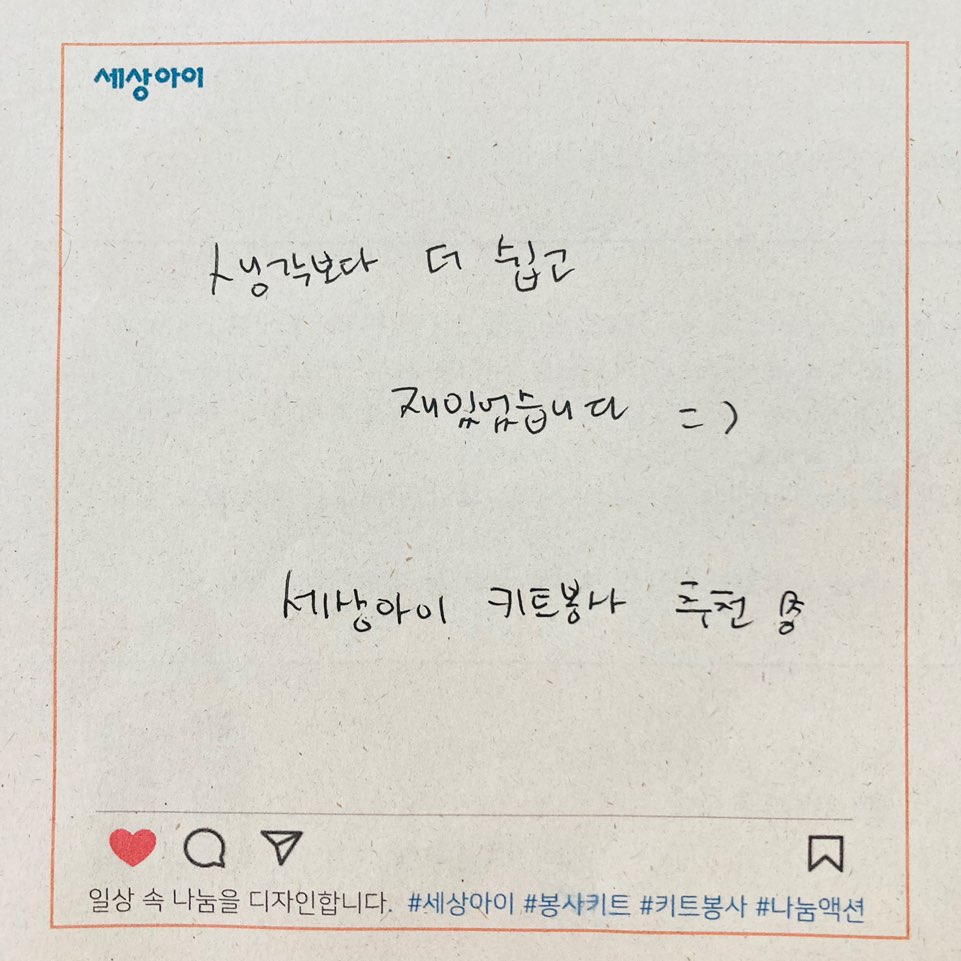 세상아이
생각보다 더 쉽고
재밌었습니다 =)
세상아이 키트봉사 추천
일상 속 나눔을 디자인합니다. #세상아이 #봉사키트 #키트봉사 #나눔액션